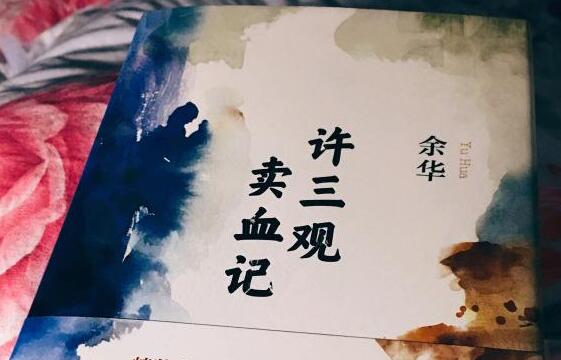 余华
Yu Hua
许三观
卖血记